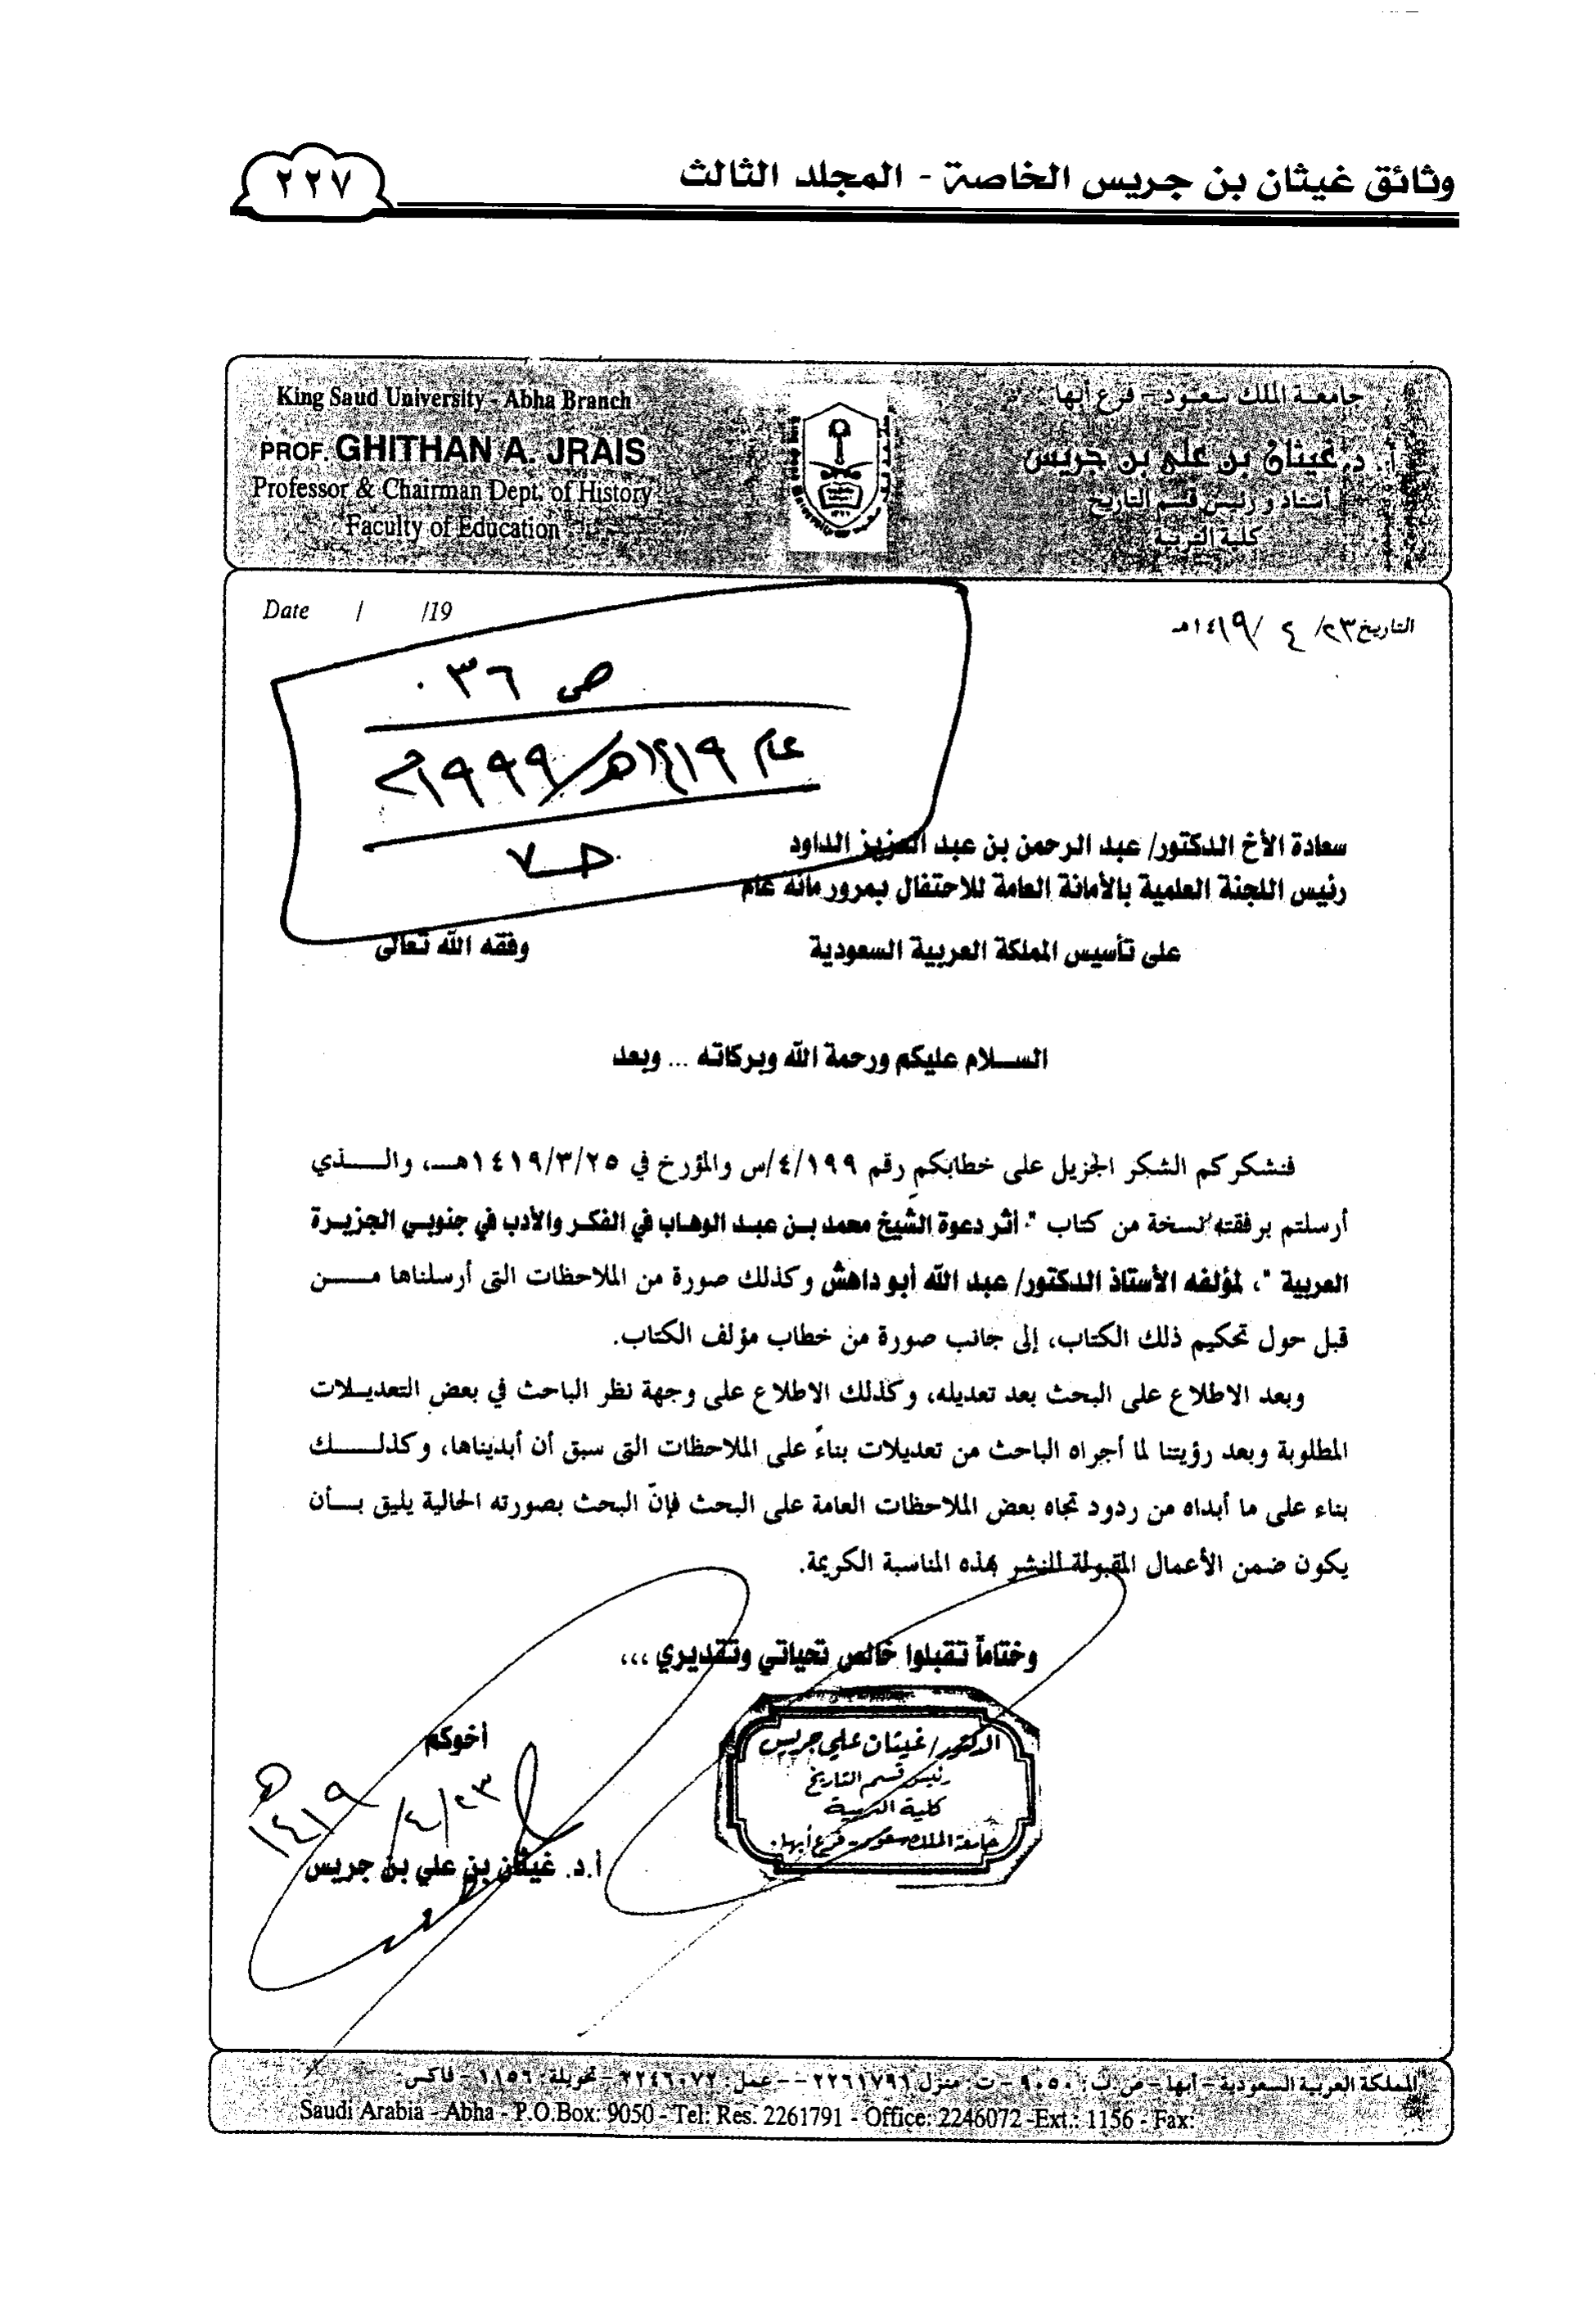 وثائق غيثان بن جريس الخاصة - المجلد الثالث
٢٢٧
King Saud University - Abha Branch
PROF. GHITHAN A. JRAIS
Professor & Chairman Dept. of History
Faculty of Education
جامعة الملك سعود - فرع أبها
أ. د. غيثان بن علي بن جريس
أستاذ و رئيس قسم التاريخ
كلية التربية
Date / /19
التاريخ ٢٣/ ٤ /١٤١٩هـ
ص ٣٦٠
عام ١٤١٩هـ/١٩٩٩م
سعادة الأخ الدكتور/ عبد الرحمن بن عبد العزيز الداود
رئيس اللجنة العلمية بالأمانة العامة للاحتفال بمرور مائة عام
على تأسيس المملكة العربية السعودية وفقه الله تعالى
السلام عليكم ورحمة الله وبركاته ... وبعد
فنشكركم الشكر الجزيل على خطابكم رقم ٤/١٩٩/س والمؤرخ في ١٤١٩/٣/٢٥هـ، والذي
أرسلتم برفقته نسخة من كتاب " أثر دعوة الشيخ محمد بن عبد الوهاب في الفكر والأدب في جنوبي الجزيرة
العربية "، لمؤلفه الأستاذ الدكتور/ عبد الله أبو داهش وكذلك صورة من الملاحظات التي أرسلناها من
قبل حول تحكيم ذلك الكتاب، إلى جانب صورة من خطاب مؤلف الكتاب.
وبعد الاطلاع على البحث بعد تعديله، وكذلك الاطلاع على وجهة نظر الباحث في بعض التعديلات
المطلوبة وبعد رؤيتنا لما أجراه الباحث من تعديلات بناءً على الملاحظات التي سبق أن أبديناها، وكذلك
بناء على ما أبداه من ردود تجاه بعض الملاحظات العامة على البحث فإنّ البحث بصورته الحالية يليق بأن
يكون ضمن الأعمال المقبولة للنشر بهذه المناسبة الكريمة.
وختاماً تقبلوا خالص تحياتي وتقديري ...
أخوكم
٢٣/٤/١٤١٩هـ
أ.د. غيثان بن علي بن جريس
الدكتور/ غيثان علي جريس
رئيس قسم التاريخ
كلية التربية
جامعة الملك سعود - فرع أبها
المملكة العربية السعودية - أبها - ص.ب: ٩٠٥٠ - ت: منزل ٢٢٦١٧٩١ - - عمل: ٢٢٤٦٠٧٢ - تحويلة: ١١٥٦ - فاكس:
Saudi Arabia - Abha - P.O.Box: 9050 - Tel: Res. 2261791 - Office: 2246072 -Ext.: 1156 - Fax: